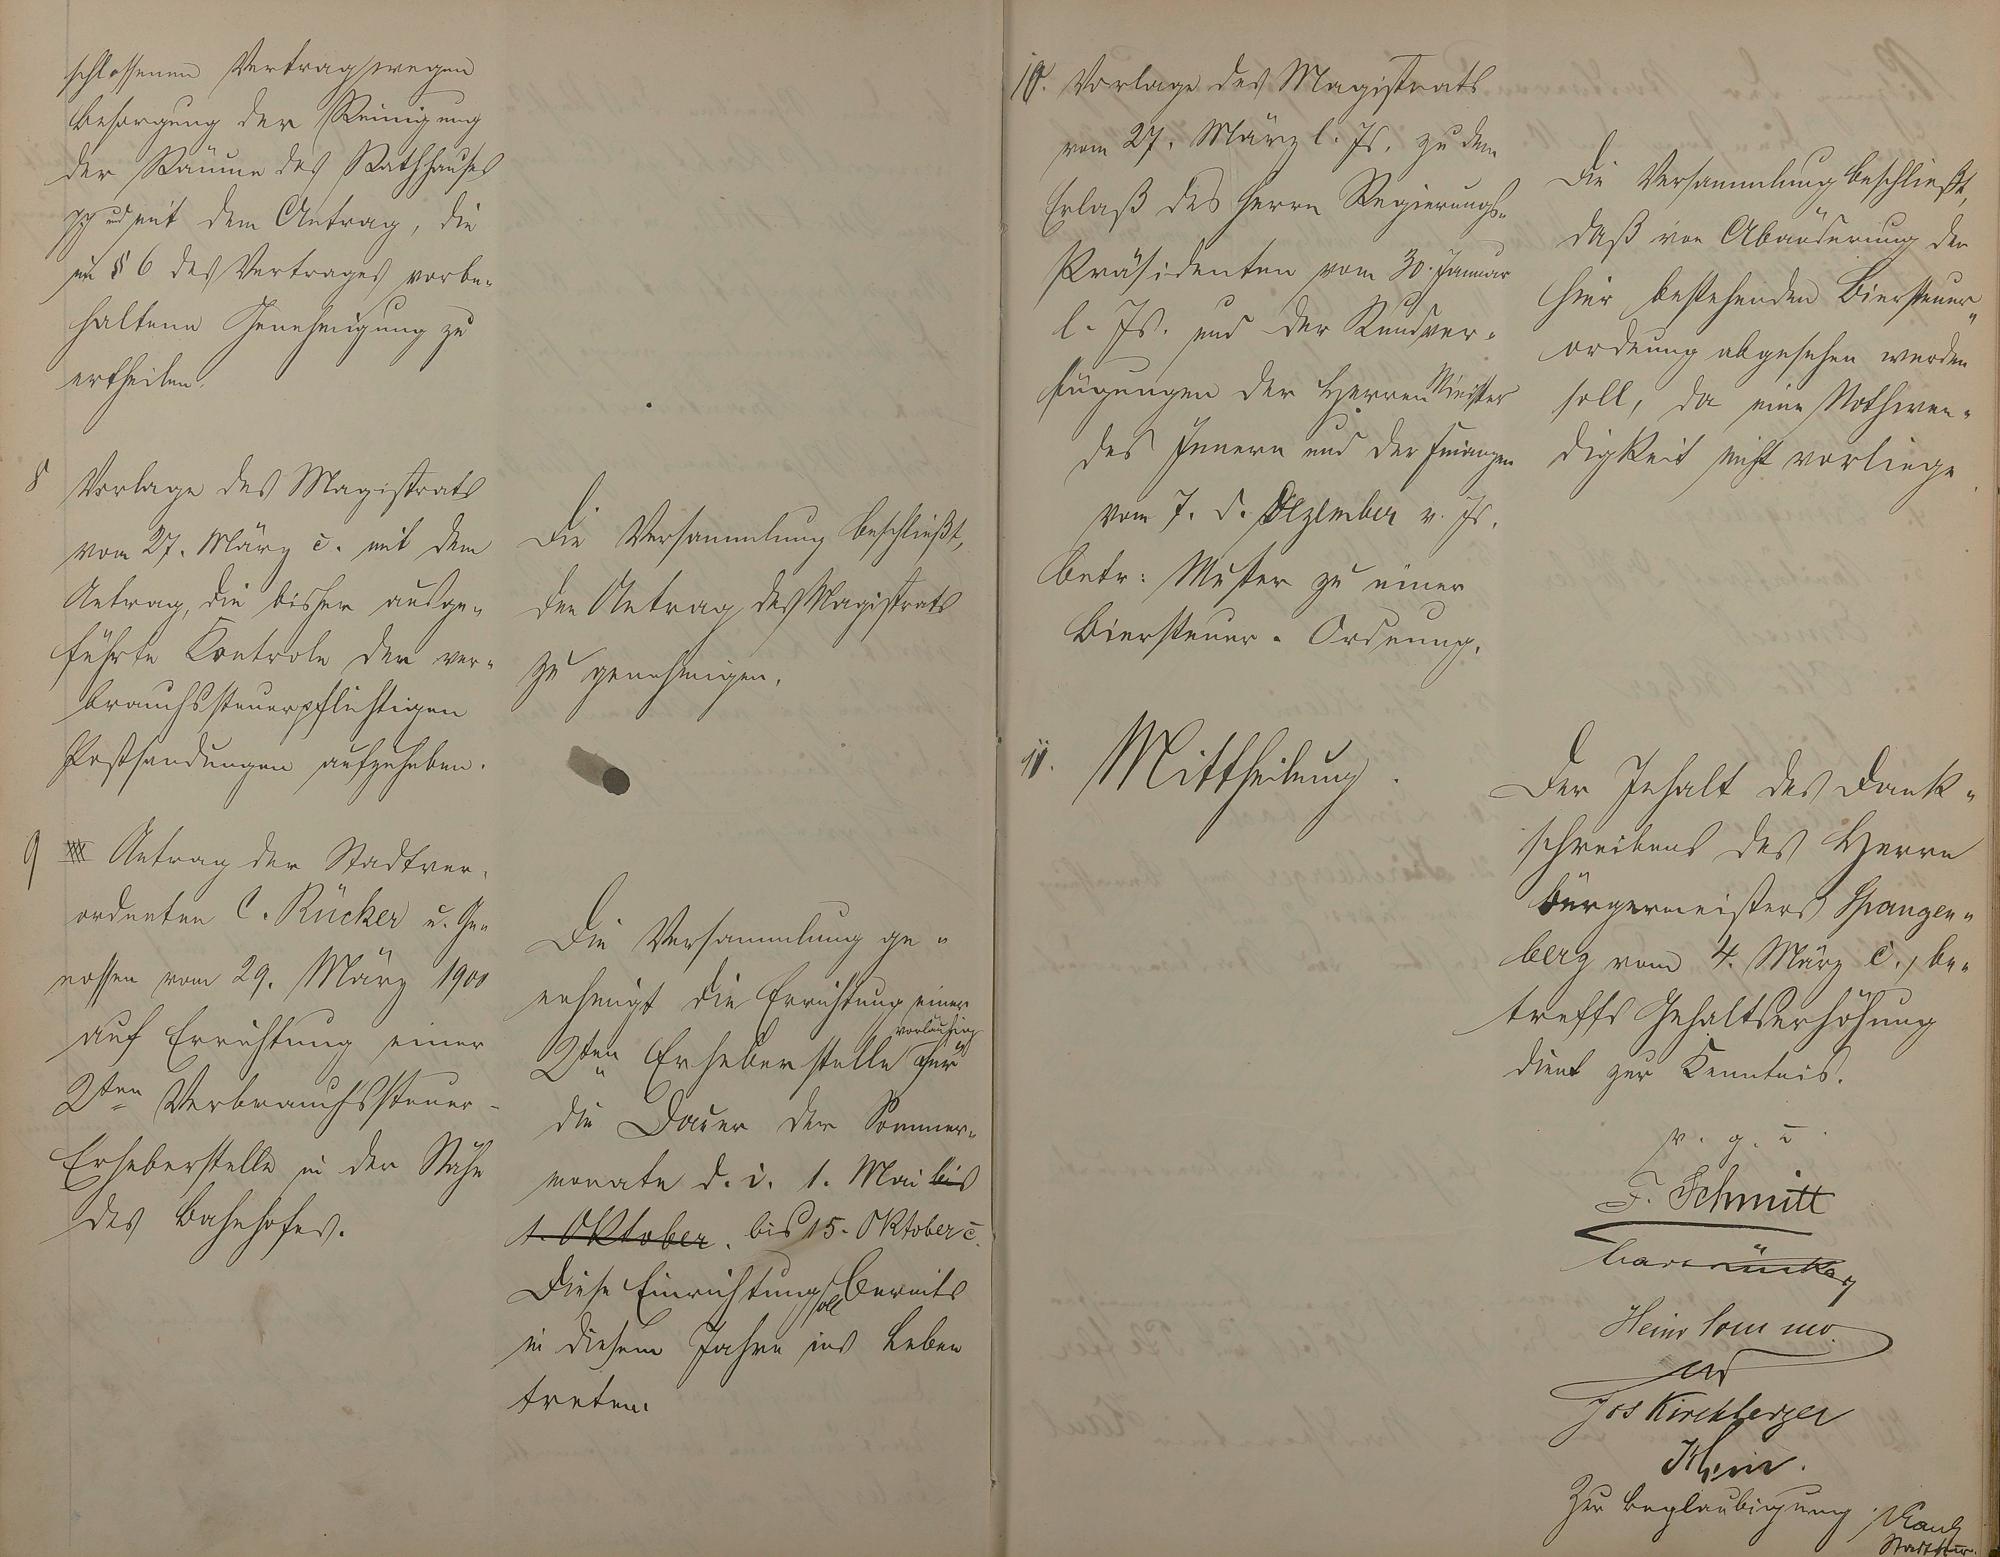 schlossenen Vertrag wegen
Besorgung der Reinigung
der Räume des Rathhauses
pp und mit dem Antrag, die
in § 6 des Vertrages vorbe-
haltene Genehmigung zu
ertheilen.
8 Vorlage des Magistrats
vom 27. März c. mit dem
Antrag, die bisher ausge-
führte Kontrole der ver-
brauchssteuerpflichtigen
Postsendungen aufzuheben.
Die Versammlung beschließt,
den Antrag des Magistrats
zu genehmigen.
9 Antrag der Stadtver-
ordneten C. Rücker u. Ge-
nossen vom 29. März 1900
auf Errichtung einer
2ten Verbrauchssteuer-
Erheberstelle in der Nähe
des Bahnhofes.
Die Versammlung ge-
nehmigt die Errichtung einer
2ten Erheberstelle vorläufig für
die Dauer der Sommer-
monate d. i. 1. Mai bis
1. Oktober. bis 15. Oktober c.
Diese Einrichtung soll bereits
in diesem Jahre ins Leben
treten.
10. Vorlage des Magistrats
vom 27. März l. Js. zu dem
Erlaß des Herrn Regierungs-
Präsidenten vom 30. Januar
l. Js. und der Rundver-
fügungen der Herren Minister
des Innern und der Finanzen
vom 7. d. Dezember v. Js.
betr: Muster zu einer
Biersteuer-Ordnung.
Die Versammlung beschließt,
daß von Abänderung der
hier bestehenden Biersteuer-
ordnung abgesehen werden
soll, da eine Nothwen-
digkeit nicht vorliege.
11. Mittheilung.
Der Inhalt des Dank-
schreibens des Herrn
Bürgermeisters Spangen-
berg vom 4. März c., be-
treffs Gehaltserhöhung
dient zur Kenntnis.
v. g. u.
F. Schmitt
Jos Kirchberger
Klein.
Zur Beglaubigung